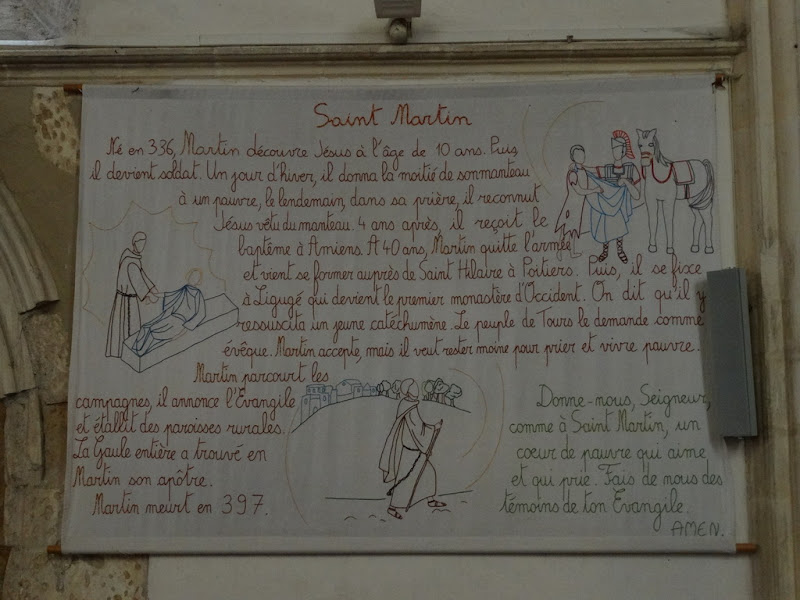 Saint Martin
Né en 336, Martin découvre Jésus à l'âge de 10 ans. Puis
il devient soldat. Un jour d'hiver, il donna la moitié de son manteau
à un pauvre, le lendemain, dans sa prière, il reconnut
Jésus vêtu du manteau. 4 ans après, il reçoit le
baptême à Amiens. A 40 ans, Martin quitte l'armée
et vient se former auprès de Saint Hilaire à Poitiers. Puis, il se fixe
à Ligugé qui devient le premier monastère d'Occident. On dit qu'il y
ressuscita un jeune catéchumène. Le peuple de Tours le demande comme
évêque. Martin accepte, mais il veut rester moine pour prier et vivre pauvre.
Martin parcourt les
campagnes, il annonce l'Evangile
et établit des paroisses rurales.
La Gaule entière a trouvé en
Martin son apôtre.
Martin meurt en 397.
Donne-nous, Seigneur,
comme à Saint Martin, un
coeur de pauvre qui aime
et qui prie. Fais de nous des
témoins de ton Evangile.
AMEN.